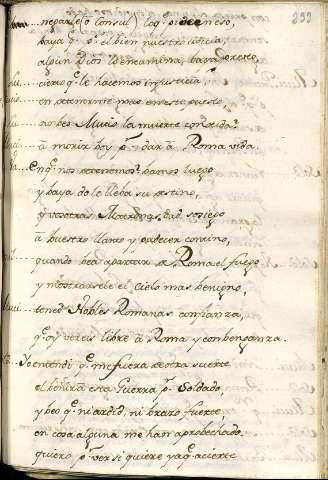 233
neparle (o Consul) loq. pide en eso,
vaya q. p. el bien nuestro codicia,
algun Dios lo encamina, bara
cierto q. le hacemos injusticia
en detenerme mas en este puesto,
no ves Mucio la muerte conocida?
à morir boy p. dar à Roma vida.
En q. nos detenemos? bamos luego
y baya do le lleba su destino,
y vosotras Matronas, dad sosiego
à vuestro llanto y padecer contino,
quando bea apartar de Roma el fuego
y mostrarsele el cielo mas benigno,
tened Nobles Romanas confianza,
q. oy vereis libre à Roma y con benganza.
Yo entendi q. me fuera de otra suerte
el benir à esta Guerra p. Soldado,
y veo q. ni ardid, ni brazo fuerte
en cosa alguna me han aprobechado.
quiero p. ver si quiere ya q. acierte